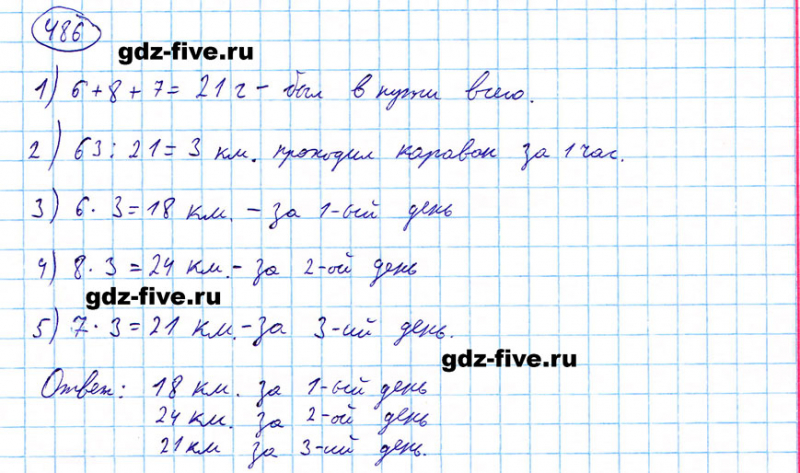 486
gdz-five.ru
1) 6+8+7= 21 г - был в пути всего.
2) 63:21= 3 км. проходил караван за 1 час.
3) 6·3=18 км. - за 1-ый день
4) 8·3=24 км.- за 2-ой день
gdz-five.ru
5) 7·3=21 км.-за 3-ий день.
gdz-five.ru
Ответ: 18 км. за 1-ый день
24 км. за 2-ой день
21 км за 3-ий день.